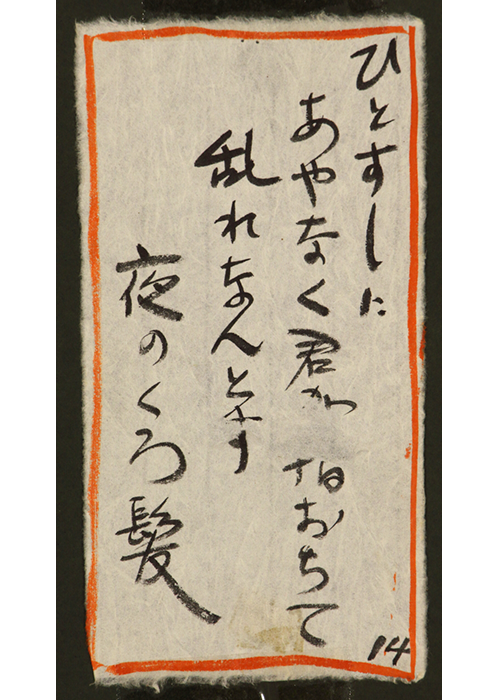 ひとすしに
あやなく君が 指おちて
乱れなんとす
夜のくろ髪
14